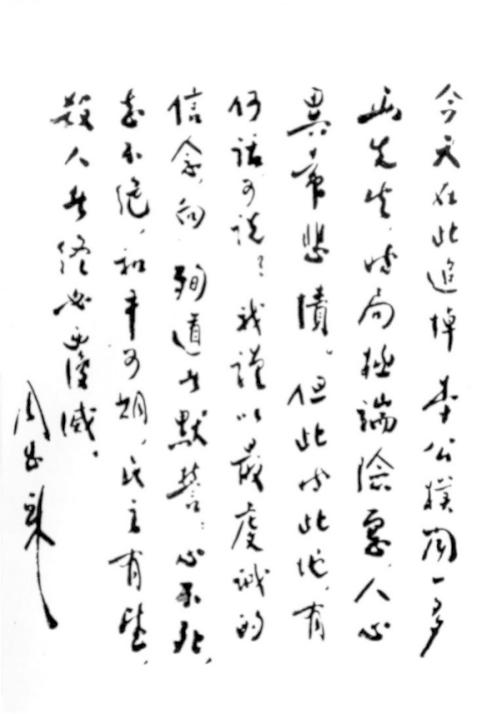 今天在此追悼李公樸聞一多
两先生，时局極端險惡，人心
異常悲憤。但此时此地，有
何話可說？我謹以最虔誠的
信念，向殉道者默誓：心不死，
志不絕，和平可期，民主有望，
殺人者終必覆滅。
周恩来